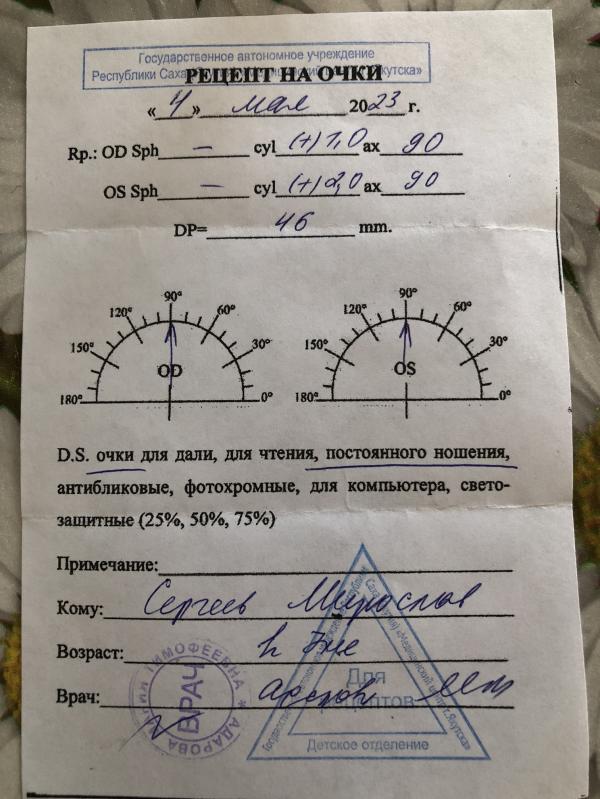 Государственное автономное учреждение
Республики Саха Якутска»
РЕЦЕПТ НА ОЧКИ
«4» мая 2023 г.
Rp.: OD Sph — cyl (+)1,0 ax 90
OS Sph — cyl (+)2,0 ax 90
DP= 46 mm.
90°
120° 60°
150° 30°
OD
180° 0°
90°
120° 60°
150° 30°
OS
180° 0°
D.S. очки для дали, для чтения, постоянного ношения,
антибликовые, фотохромные, для компьютера, свето-
защитные (25%, 50%, 75%)
Примечание:
Кому: Сергеев Мирослав
Возраст:
Врач:
ТИМОФЕЕВНА * АДАРОВА
ВРАЧ
Для
рецептов
Детское отделение